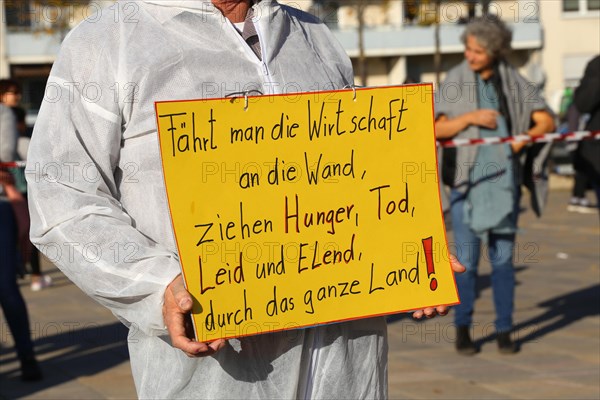 Fährt man die Wirtschaft
an die Wand,
ziehen Hunger, Tod,
Leid und ELend,
durch das ganze Land!